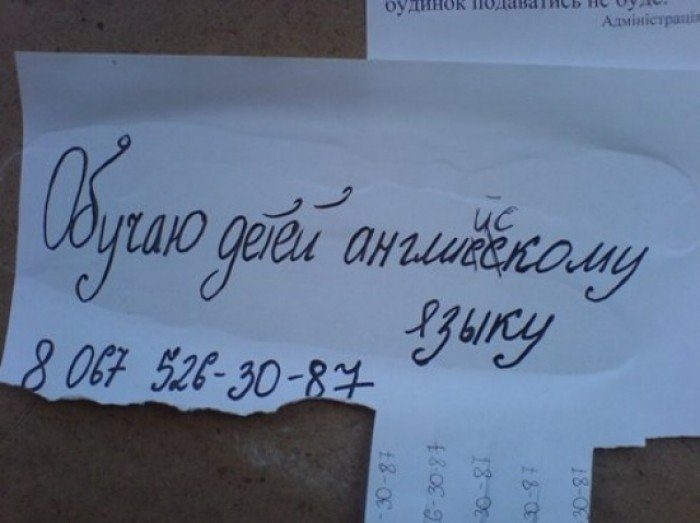 будинок подаватись не буде.
Адміністрація
Обучаю детей английскому
языку
8 067 526-30-87
-30-87
6-30-87
-30-87
0-87
30-87